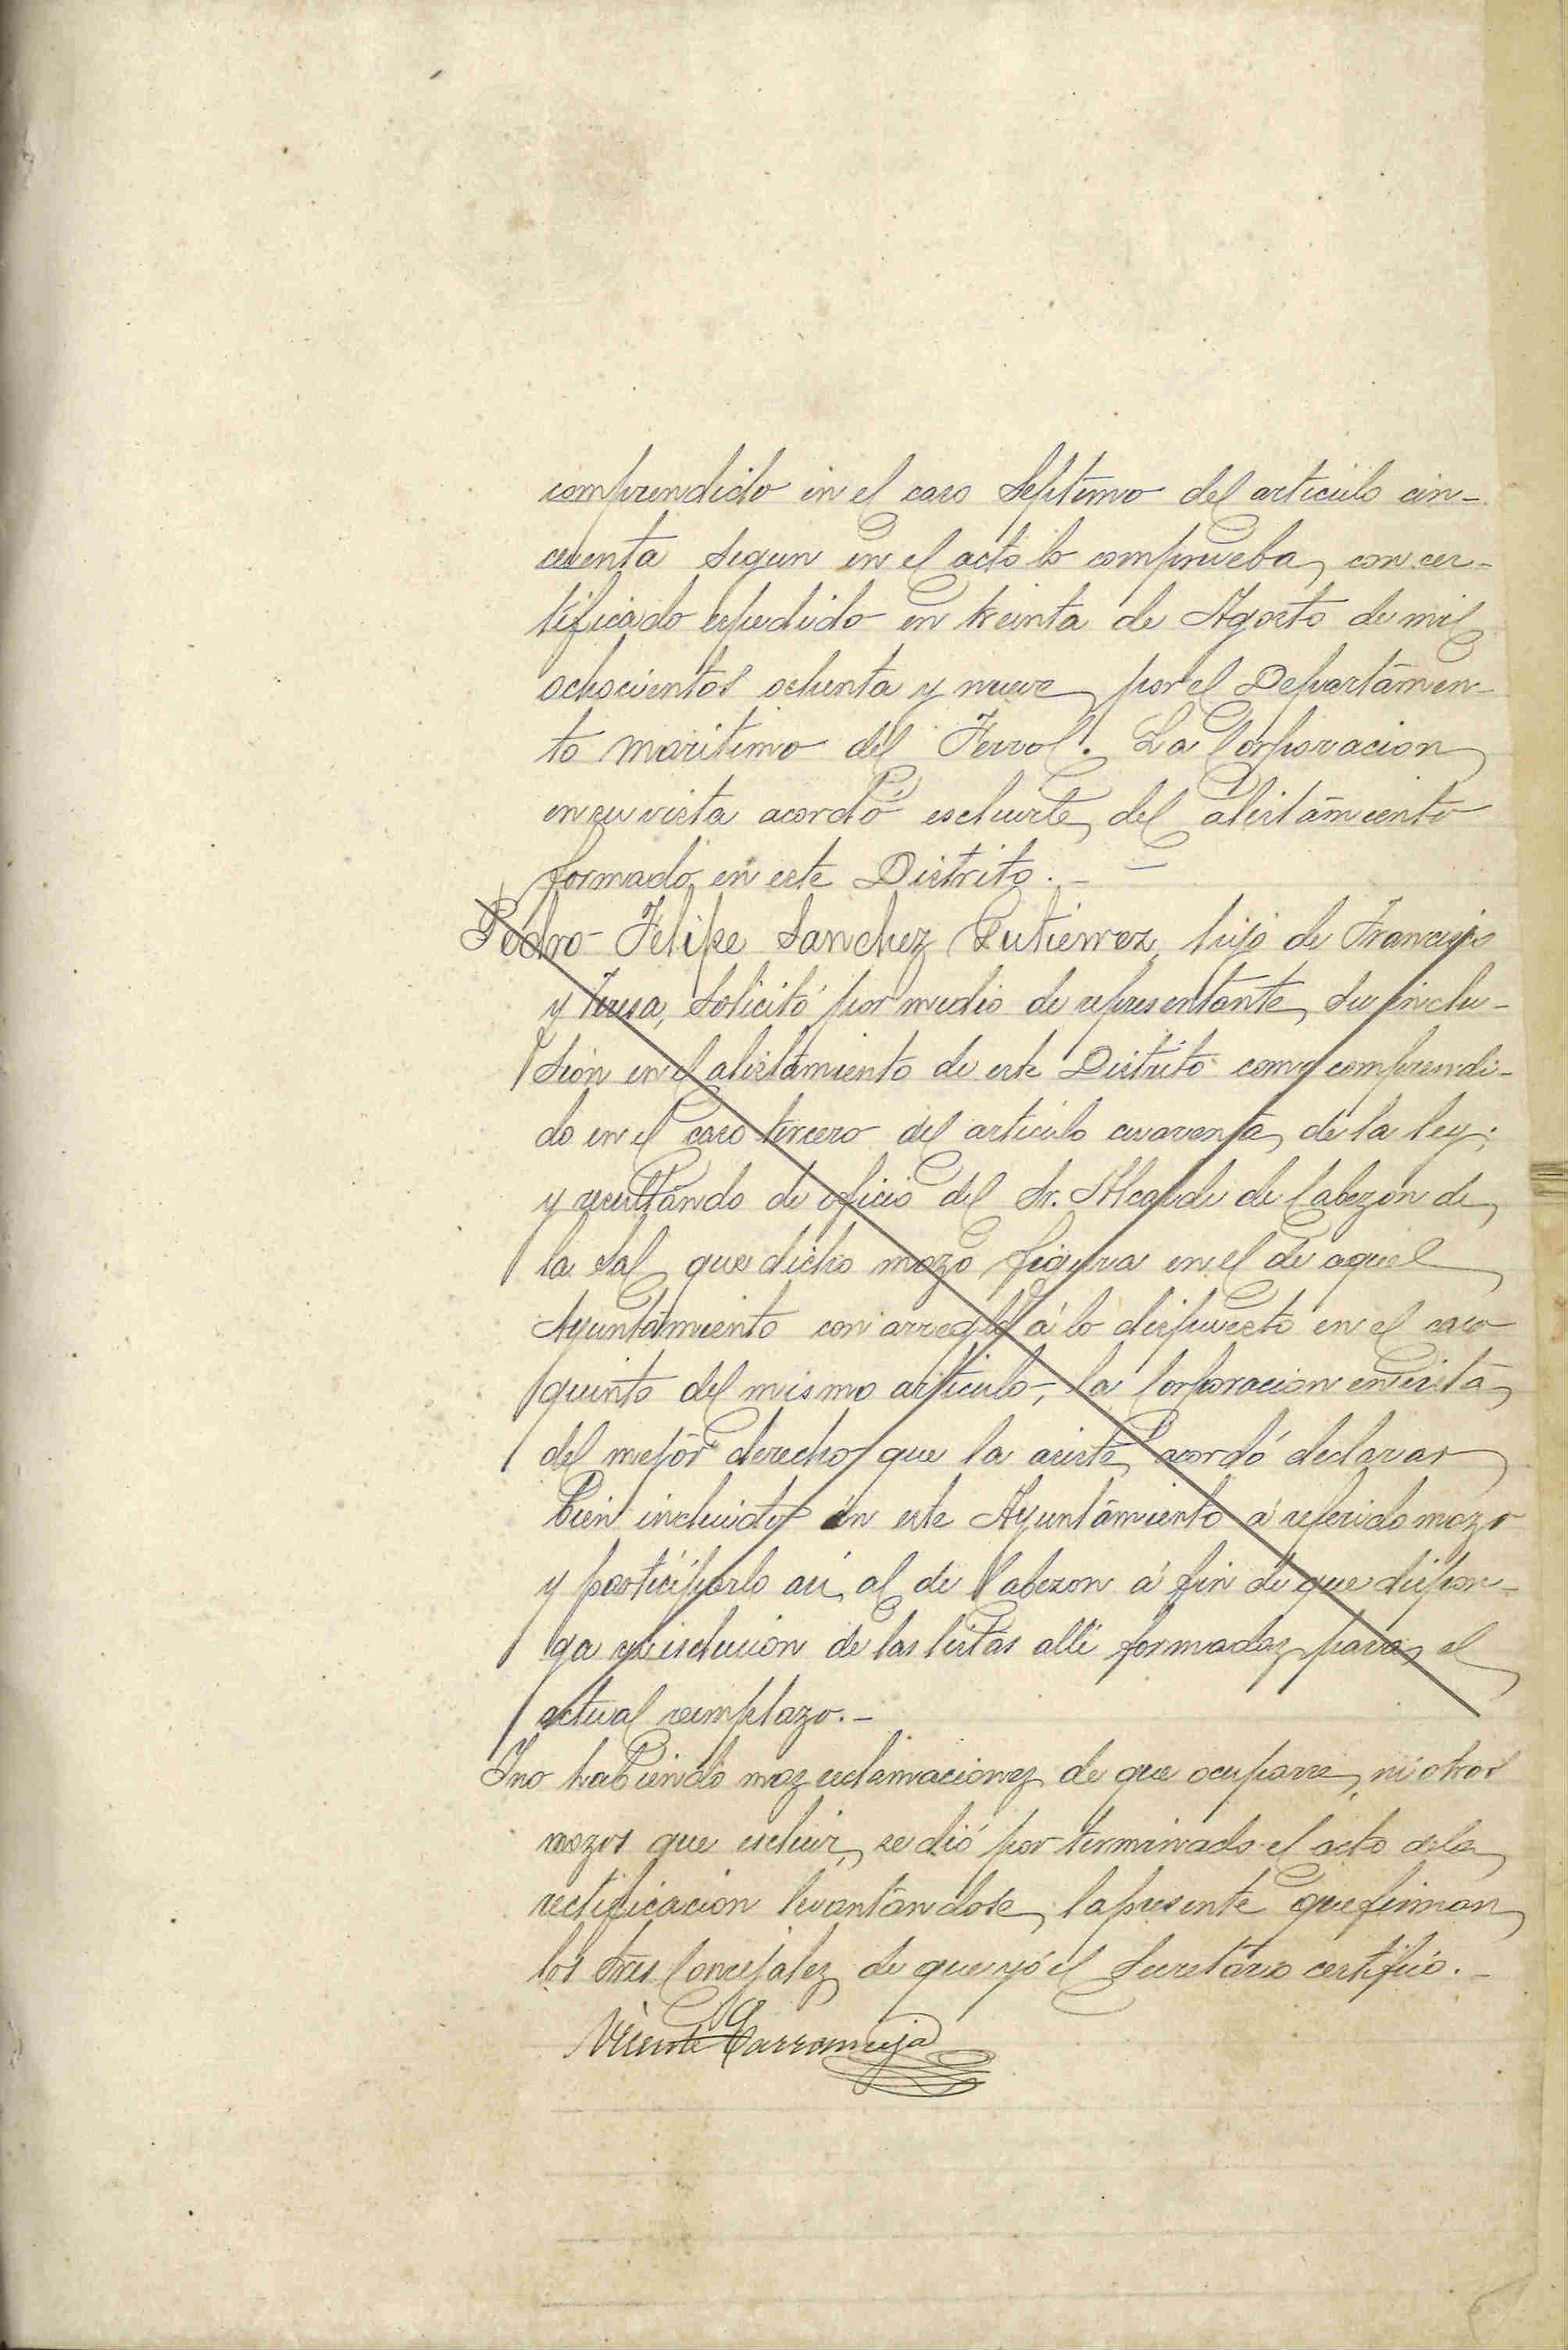 comprendido en el caso Septimo del articulo cin-
cuenta segun en el acto lo comprueba con cer-
tificado espedido en treinta de Agosto de mil
ochocientos ochenta y nueve por el Departamen-
to maritimo del Ferrol. La Corporacion
en su vista acordó escluirle del alistamiento
formado en este Distrito. _ _
Pedro Felipe Sanchez Gutierrez, hijo de Francisco
y Teresa, solicitó por medio de representante, su inclu-
sion en el alistamiento de este Distrito como comprendi-
do en el caso tercero del articulo cuarenta de la ley;
y resultando de oficio del Sr. Alcalde de Cabezon de
la Sal que dicho mozo figura en el de aquel
Ayuntamiento con arreglo á lo dispuesto en el caso
quinto del mismo articulo, la Corporacion en vista
del mejor derecho que la asiste, acordó declarar
bien incluido en este Ayuntamiento á referido mozo
y participarlo asi al de Cabezon á fin de que dispon-
ga su esclusion de las listas alli formadas para el
actual reemplazo. _
Y no habiendo mas reclamaciones de que ocuparse, ni otros
mozos que escluir, se dió por terminado el acto de la
rectificacion levantandose la presente que firman
los Sres Concejales de que yo el Secretario certifico. _
Vicente Carramuja